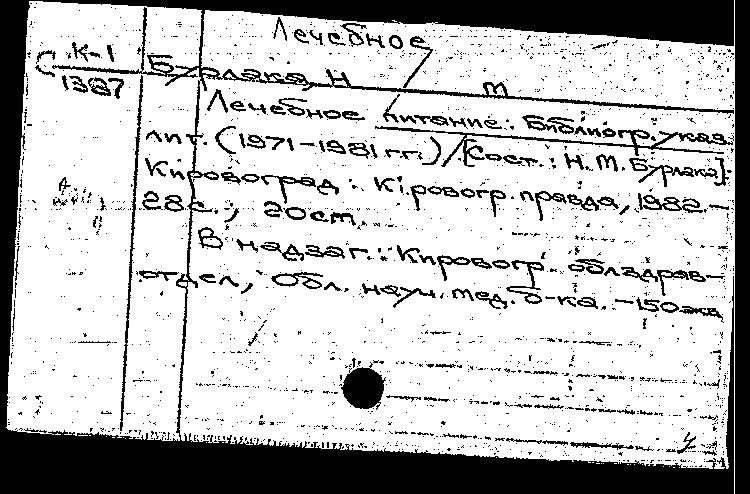 Лечебное
С К-1
1387
Бурлака, Н
м
Лечебное питание: Библиогр. указ.
лит. (1971-1981 гг.) / [Сост.: Н.М. Бурлака].
Кировоград: Кiровогр. правда, 1982.-
28с.; 20см.
В надзаг.: Кировогр. облздрав-
отдел, Обл. науч. мед. б-ка. -150экз